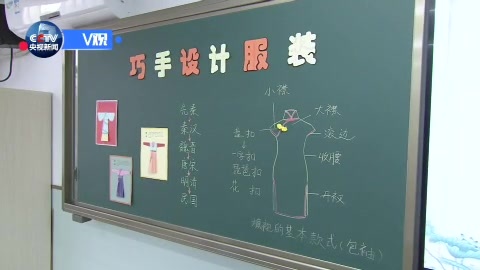 CCTV
央视新闻
V观
巧手设计服装
小襟
大襟
滚边
收腰
开衩
先秦
秦汉
魏晋
唐宋
明清
民国
盘扣
一字扣
琵琶扣
花扣
旗袍的基本款式(包袖)